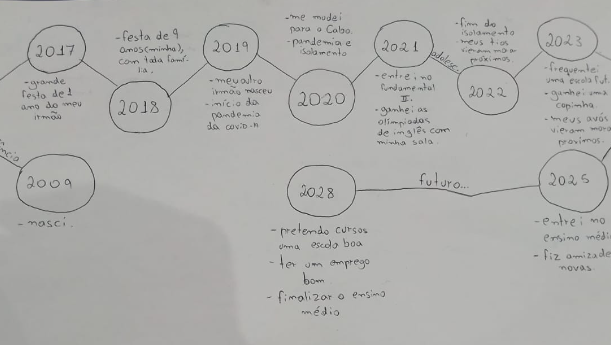 2017
- grande
festa de 1
ano do meu
irmão
- festa de 9
anos (minha),
com toda famí-
lia.
2018
2019
- meu outro
irmão nasceu
- início da
pandemia
da covid-19
- me mudei
para o Cabo.
- pandemia e
isolamento
2020
2021
- entrei no
fundamental
II.
- ganhei as
olimpíadas
de inglês com
minha sala.
- fim do
isolamento
- meus tios
vieram
próximos.
2022
2023
- frequentei
uma escola fut.
- ganhei uma
copinha.
- meus avós
vieram mora
proximos.
2009
- nasci.
2028
- pretendo cursos
uma escola boa
- ter um emprego
bom
- finalizar o ensino
médio
futuro...
2025
- entrei no
ensino médi
- fiz amizade
novas.